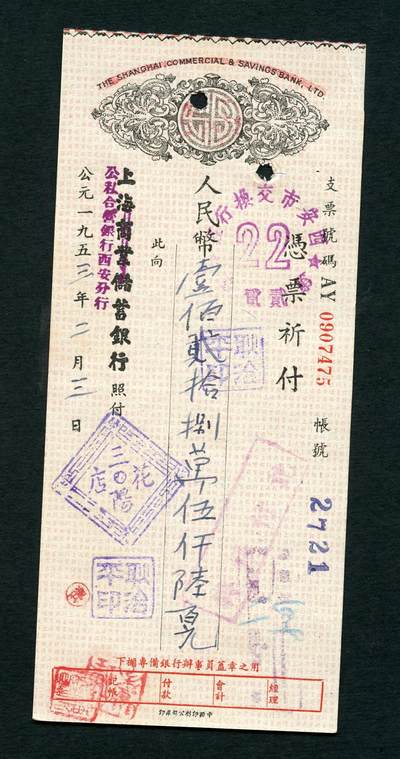 THE SHANGHAI COMMERCIAL & SAVINGS BANK, LTD.
支票號碼 AY 0907475
帳號 2721
憑票祈付
22
貳貳
人民幣壹佰貳拾捌萬伍仟陸百元
此向
上海商業儲蓄銀行 照付
公私合營銀行西安分行
公元一九五三年二月三日
三〇陽
花店
耿治平印
耿治平印
下欄專備銀行辦事員蓋章之用
經理
會計
付款
記帳